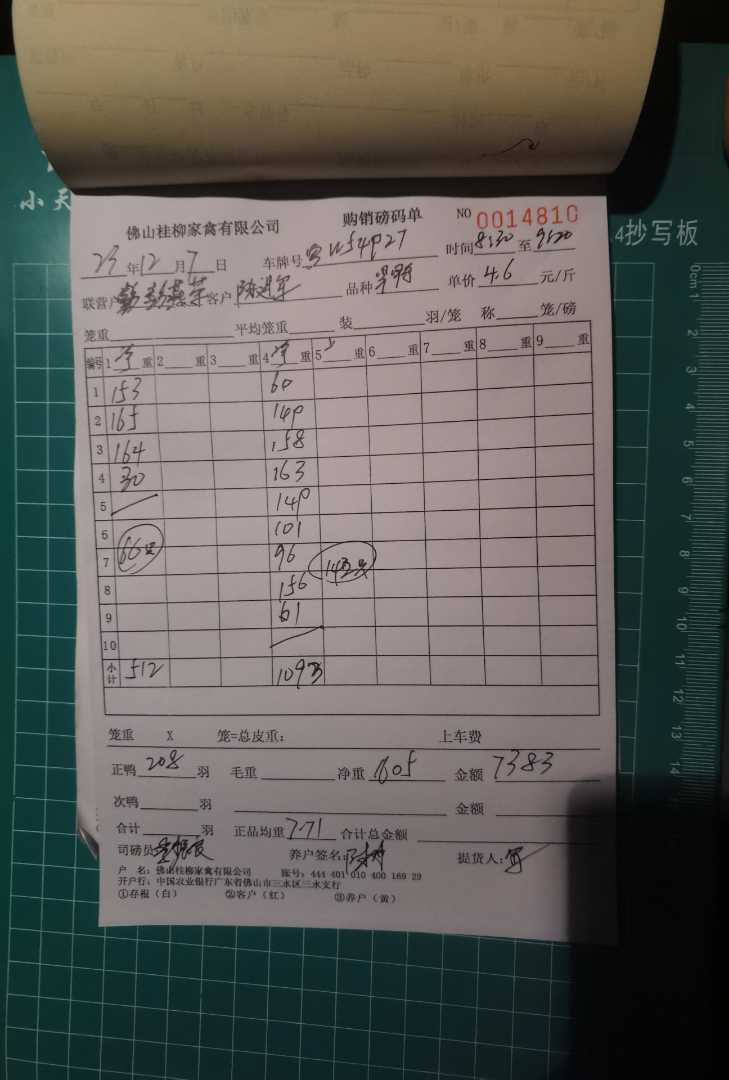 小天
4抄写板
佛山桂柳家禽有限公司 购销磅码单 NO 0014810
23年12月7日 车牌号 54P27 时间8:30至9:20
联营户 客户 陈进军 品种 单价4.6元/斤
笼重 平均笼重 装 羽/笼 称 笼/磅
编号 1 重 2 重 3 重 4 重 5 重 6 重 7 重 8 重 9 重
1 153 60
2 165 149
3 164 158
4 30 163
5 149
6 101
7 66只 96 142只
8 156
9 61
10
小计 512 1093
笼重 X 笼=总皮重: 上车费
正鸭 208 羽 毛重 净重 1605 金额 7383
次鸭 羽 金额
合计 羽 正品均重 7.71 合计总金额
司磅员 养户签名 提货人:
户 名: 佛山桂柳家禽有限公司 账号: 444 401 010 400 169 29
开户行: 中国农业银行广东省佛山市三水区三水支行
①存根(白) ②客户(红) ③养户(黄)
0cm 1 2 3 4 5 6 7 8 9 10 11 12 13 14